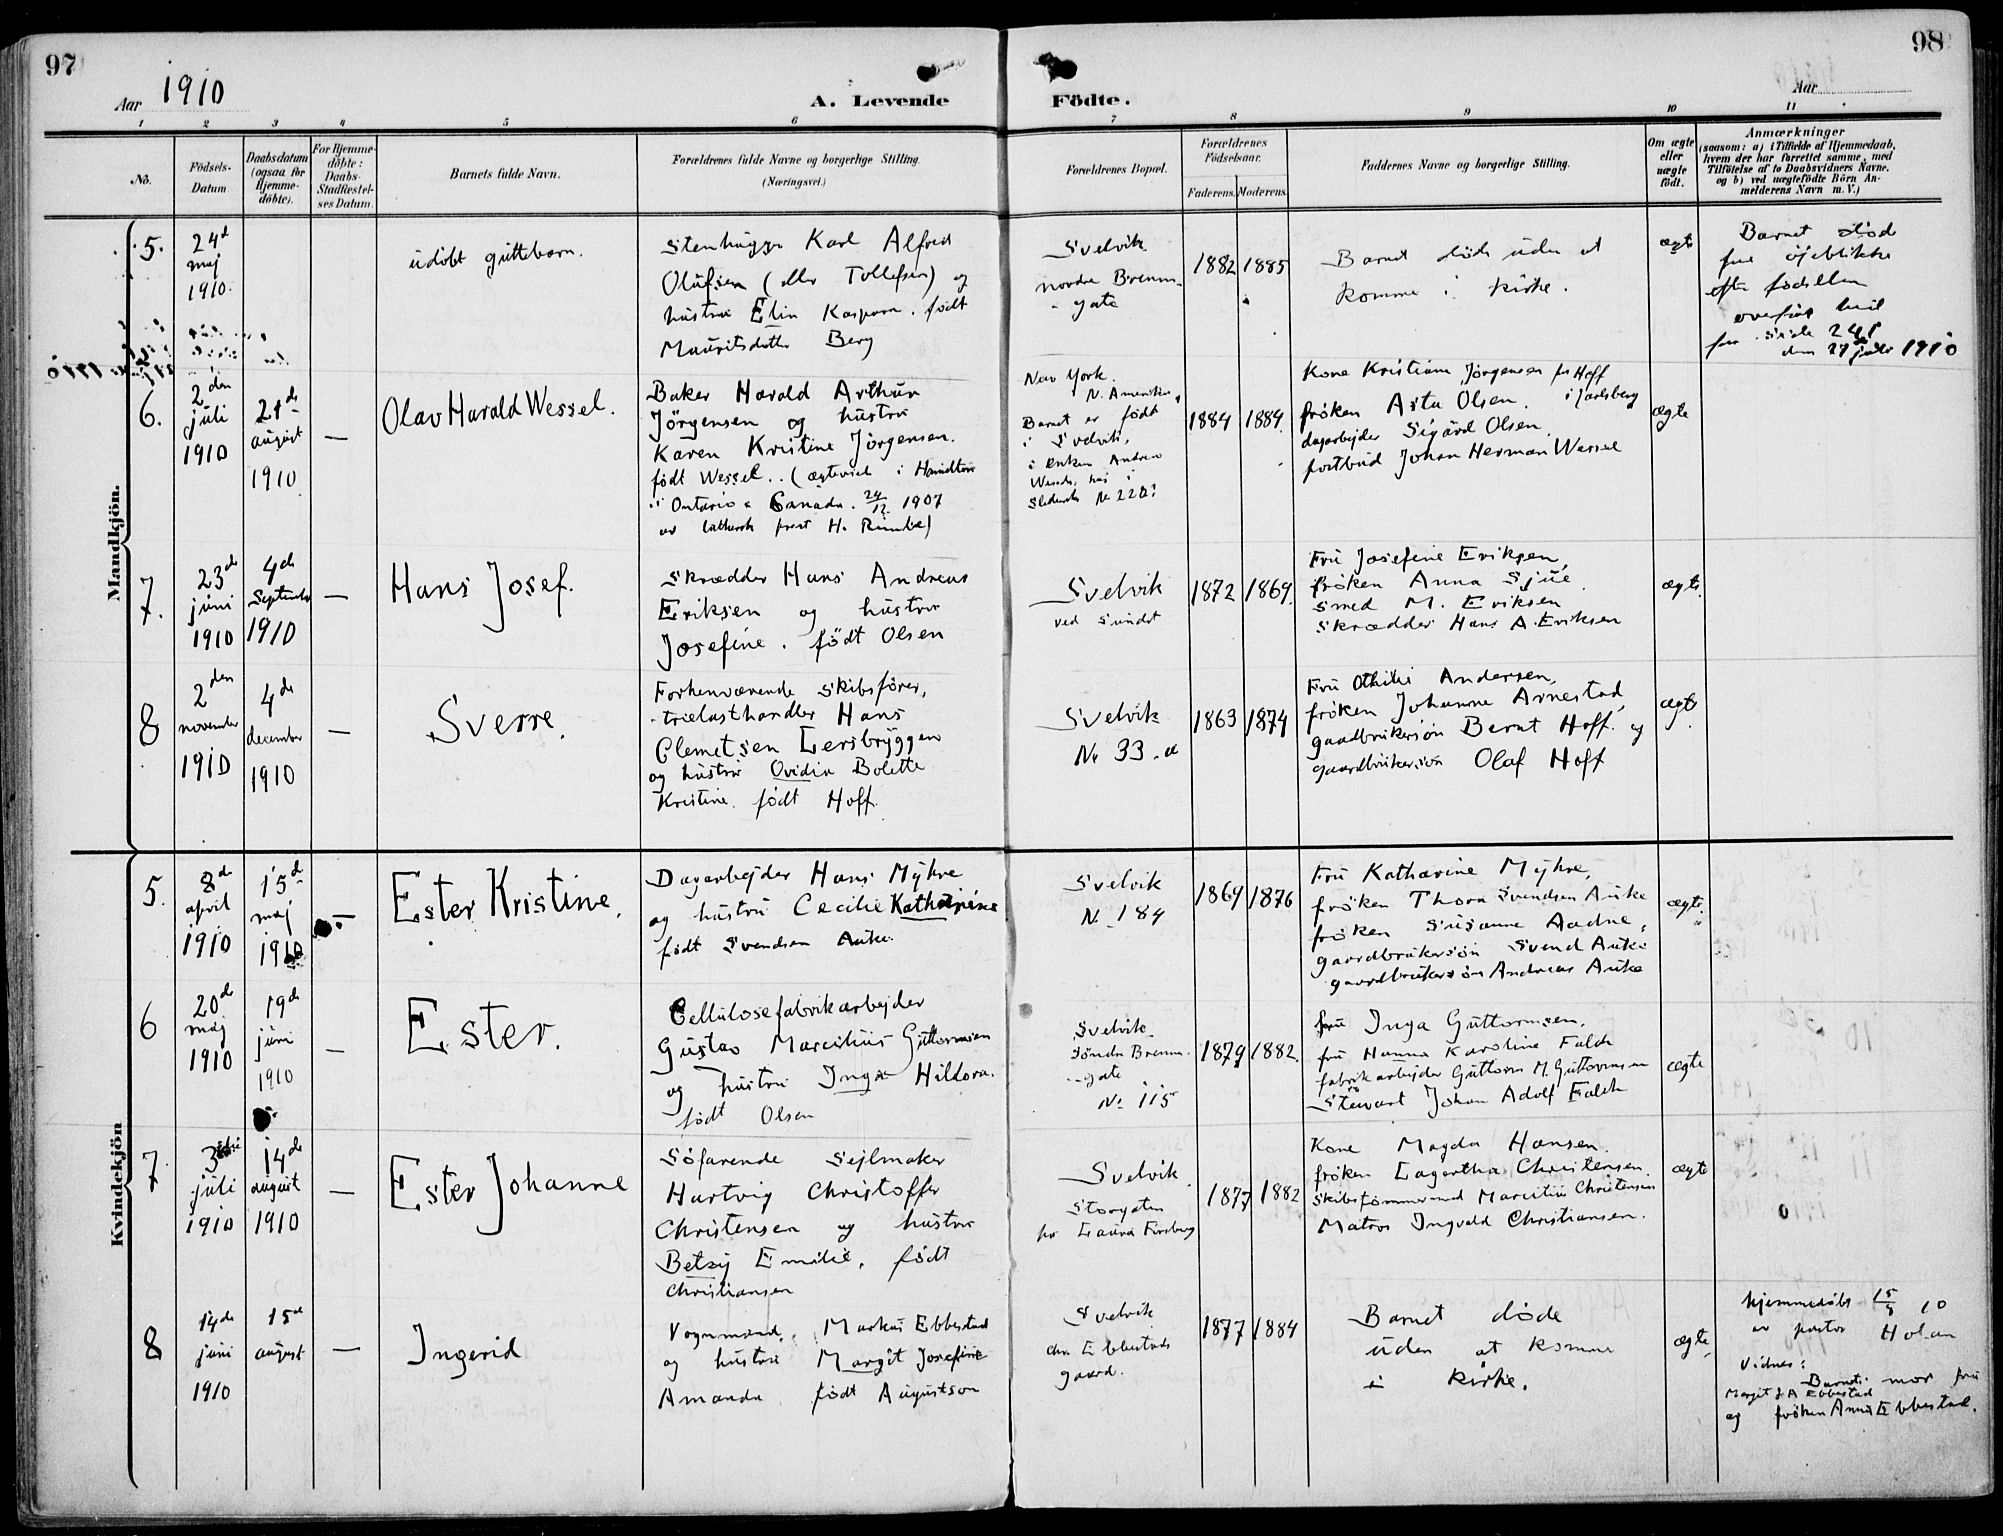 97
98
Aar 1910
A. Levende
Födte.
Aar
1
2
3
4
5
6
7
8
9
10
11
No.
Födsels-
Datum
Daabsdatum
(ogsaa for
Hjemme-
döbte).
For Hjemme-
döbte:
Daabs-
Stadfæstel-
ses Datum.
Barnets fulde Navn.
Forældrenes fulde Navne og borgerlige Stilling.
(Næringsvei.)
Forældrenes Bopæl.
Forældrenes
Födselsaar.
Faderens.
Moderens.
Faddernes Navne og borgerlige Stilling.
Om ægte
eller
uægte
födt.
Anmærkninger
(saasom: a) i Tilfælde af Hjemmedaab,
hvem der har forrettet samme, med
Tilföielse af to Daabsvidners Navne.
og b) ved uægtefödte Börn An-
melderens Navn m. V.)
Mandkjön.
5.
24d
maj
1910.
udöbt guttebarn.
Stenhugger Karl Alfred
Olufsen (eller Tollefsen) og
hustru Elin Kaspara. født
Mauritsdatter Berg
Svelvik
nordre Brenn-
gate
1882
1885
Barnet døde uden at
komme i kirke.
ægte
Barnet död
faa öjeblikke
efter födselen
overført hid
fra side 241
den 27 juli 1910
6.
2den
juli
1910
21de
august
1910
—
Olav Harald Wessel.
Baker Harald Arthur
Jörgensen og hustru
Karen Kristine Jörgensen.
født Wessel.. (ægteviet i Hamilton
i Ontario Canada. 24/12. 1907
av luthersk prest H. )
New York.
N. Amerika,
Barnet er født
i Svelvik,
i enken Andrea
Wessels hus i
No 220?
1884
1884.
Kone Kristiane Jörgensen fra Hoff
i Jarlsberg
fröken Asta Olsen.
dagarbejder Sigurd Olsen.
postbud Johan Herman Wessel
ægte
7.
23de
juni
1910
4de
September
1910
—
Hans Josef.
Skrædder Hans Andreas
Eriksen og hustru
Josefine. født Olsen
Svelvik
ved Sundet
1872
1869.
Fru Josefine Eriksen,
fröken Anna Sjue
Smed M. Eriksen
Skrædder Hans A. Eriksen
ægte.
8
2den
november
1910
4de
december
1910
—
Sverre.
Forhenværende skibsfører,
trælasthandler Hans
Clemetsen Lersbryggen
og hustru Ovidia Bolette
Kristine. født Hoff.
Svelvik
No 33.a
1863
1874
Fru Othilie Andersen,
fröken Johanne Arnestad,
gaardbrukersön Bernt Hoff. og
gaardbrukersön Olaf Hoff
ægte
Kvindekjön
5.
8de
april
1910
15de
maj
1910
—
Ester Kristine.
Dagarbejder Hans Myhre
og hustru Cecilie Katharine
født Svendsen Auke.
Svelvik
No 184
1869
1876
Fru Katharine Myhre,
fröken Thora Svendsen Auke
fröken Susanne Aadne,
gaardbrukersön Svend Auke
gaardbrukersön Andreas Auke
ægte.
6
20de
maj
1910
19de
juni
1910
—
Ester.
Cellulosefabrikarbejder
Gustav Marcelius Guttormsen
og hustru Inga Hildora.
født Olsen
Svelvik
Søndre Brenn.
gate
No 115
1879
1882.
fru Inga Guttormsen,
fru Hanna Karoline Falck
fabrikarbejder Guttorm M. Guttormsen
Stewart Johan Adolf Falck
ægte
7
3die
juli
1910
14de
august
1910
—
Ester Johanne
Söfarende Sejlmaker
Hartvig Christoffer
Christensen og hustru
Betsy Emilie, født
Christiansen
Svelvik.
Storgaten
hos Laura Forsberg
1877
1882
Kone Magda Hansen.
fröken Lagertha Christensen.
Skibstømmermand Marcelius Christensen
Matros Ingvald Christiansen.
ægte
8
14de
juni
1910
15de
august
—
Ingerid
Vognmand. Markus Ebbestad
og hustru Margit Josefine
Amanda født Augustson
Svelvik
chr. Ebbestads
gaard.
1877
1884
Barnet døde
uden at komme
i kirke.
ægte
hjemmedøbt 15/8 10
av pastor Holan
Vidner:
Barnets mor fru
Margit J A Ebbestad
og frøken Anna Ebbestad.